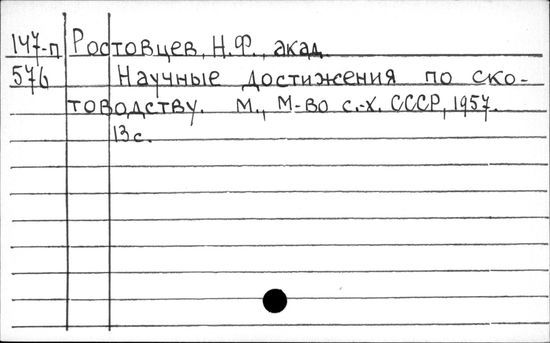 147-п Ростовцев, Н.Ф., акад.
576 Научные достижения по ско-
товодству. М., М-во с.-х. СССР, 1957.
13 с.